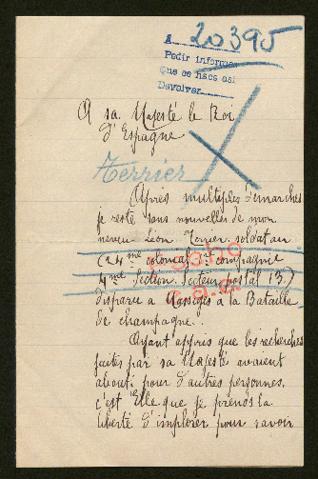 A 20395
Pedir informes
Que se hace asi
Devolver
A sa Majesté le Roi
d'Espagne
Terrier
Après multiples démarches
je reste sans nouvelles de mon
neveu Léon Terrier soldat au
(24me colonial compagnie
4me Section Secteur postal 13)
disparu a Massiges à la Bataille
de champagne.
Ayant appris que les recherches
faites par sa Majesté avaient
abouti pour d'autres personnes,
c'est Elle que je prends la
liberté d'implorer pour savoir